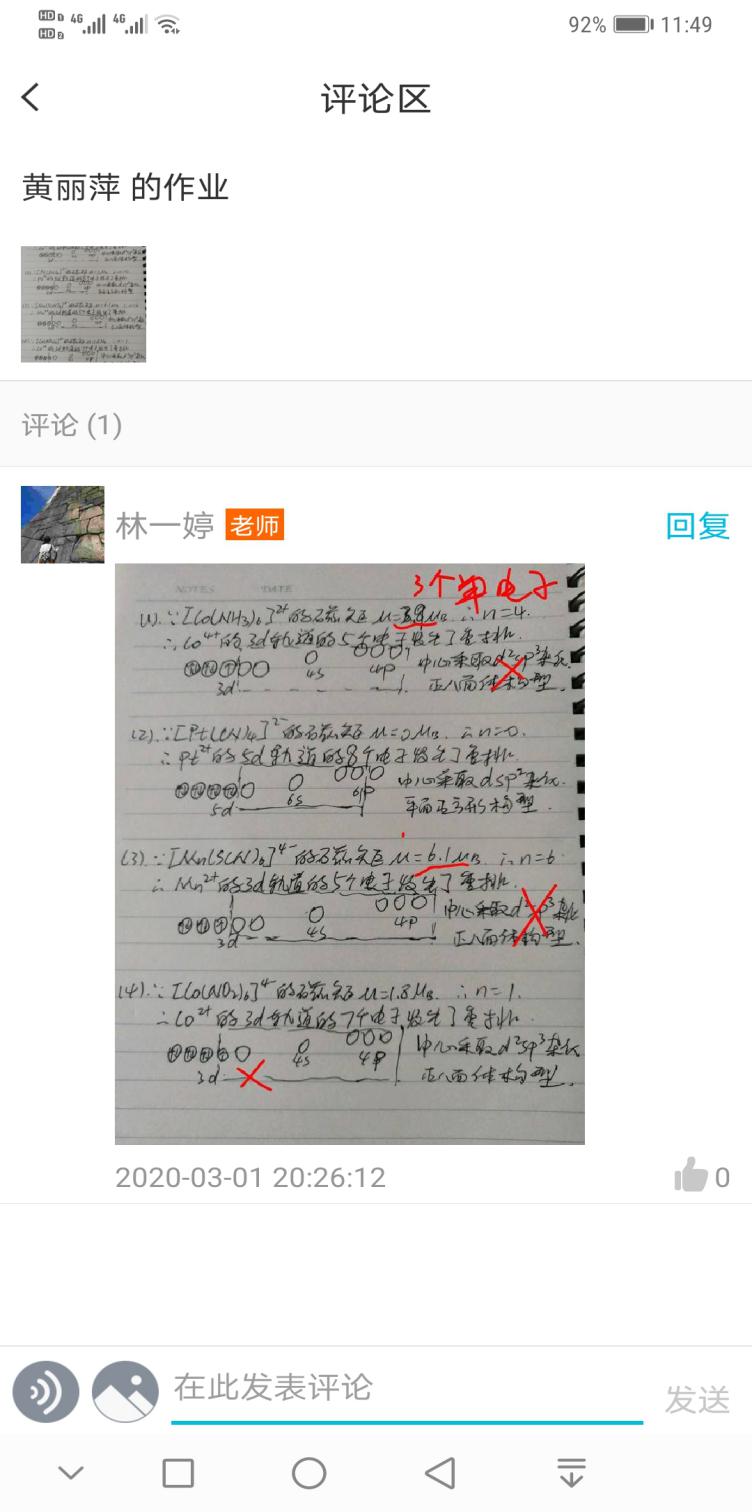 HD 1 4G 4G 92% 11:49
HD 2
评论区
黄丽萍 的作业
评论 (1)
林一婷 老师 回复
NOTES DATE
3个单电子
(1).∵[Co(NH3)6]²⁺的磁矩 μ=3.9μB ∴n=4.
∴Co⁴⁺的3d轨道的5个电子发生了重排.
4s 4p 中心采取d²sp³杂化.
3d 正八面体构型.
(2).∵[Pt(CN)4]²⁻的磁矩 μ=0μB. ∴n=0.
∴Pt²⁺的5d轨道的8个电子发生了重排.
6s 6p 中心采取dsp²杂化.
5d 平面正方形构型.
(3).∵[Mn(SCN)6]⁴⁻的磁矩 μ=6.1μB ∴n=6
∴Mn²⁺的3d轨道的5个电子发生了重排.
4s 4p 中心采取d²sp³杂化
3d 正八面体构型.
(4).∵[Co(NO2)6]⁴⁻的磁矩 μ=1.8μB. ∴n=1.
∴Co²⁺的3d轨道的7个电子发生了重排.
4s 4p 中心采取d²sp³杂化
3d 正八面体构型.
2020-03-01 20:26:12 0
在此发表评论 发送